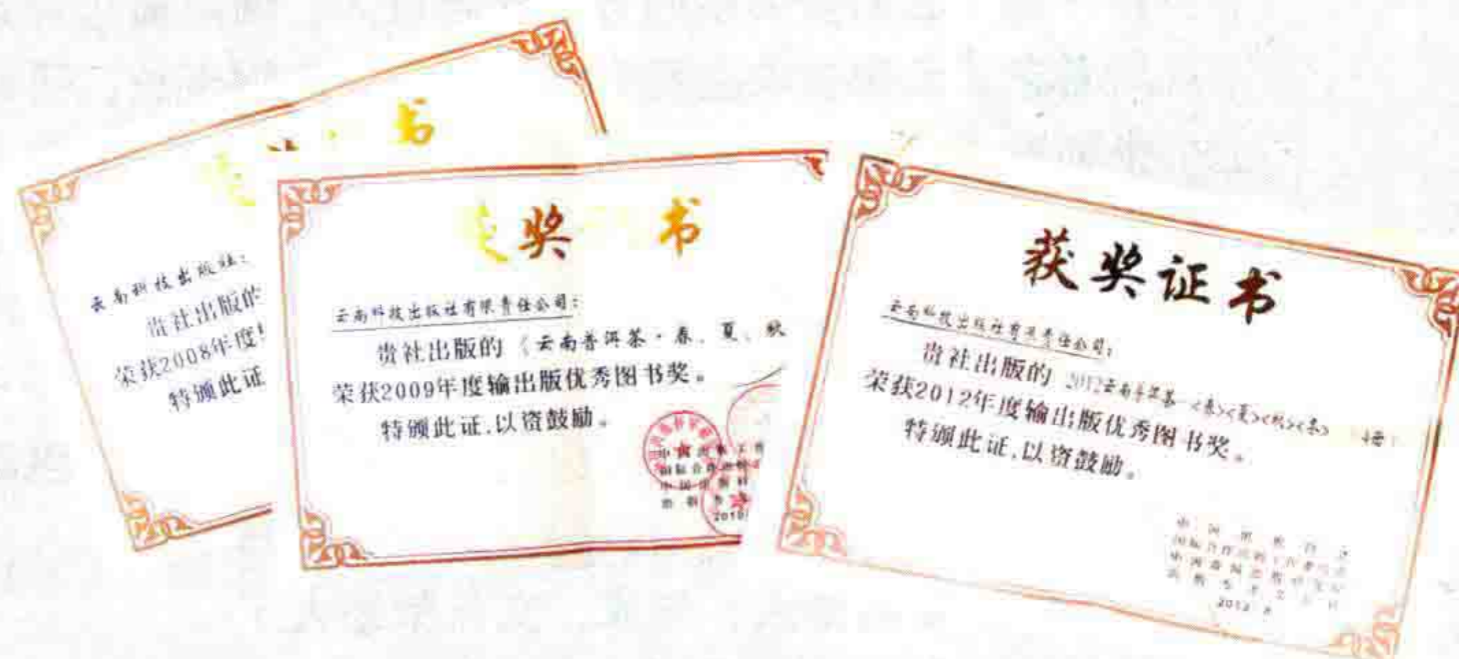 书
云南科技出版社：
贵社出版的
荣获2008年度
特颁此证
奖 书
云南科技出版社有限责任公司：
贵社出版的《云南普洱茶·春、夏、秋
荣获2009年度输出版优秀图书奖。
特颁此证,以资鼓励。
2010
获奖证书
云南科技出版社有限责任公司：
贵社出版的 2012云南普洱茶 <春><夏><秋><冬> 4册
荣获2012年度输出版优秀图书奖。
特颁此证,以资鼓励。